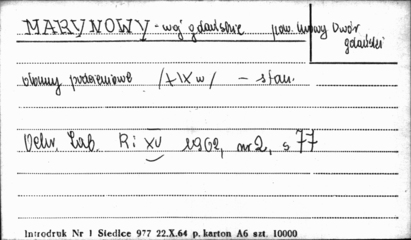 MARYNOWY - woj gdańskie pow. Nowy Dwór
gdański
domy podcieniowe /XIX w/ - stan.
Ochr. Zab. R: XV 1962, nr 2, s 77
Introdruk Nr 1 Siedlce 977 22.X.64 p. karton A6 szt. 10000